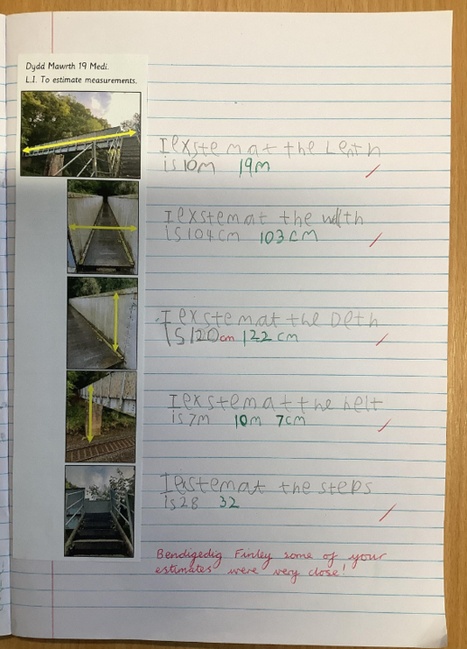 Dydd Mawrth 19 Medi.
L.I. To estimate measurements.
I exstemat the Lenth
is 10m 19m
I exstemat the width
is 104cm 103cm
I exstemat the Deth
is 120cm 122cm
I exstemat the heit
is 7m 10m 7cm
I exstemat the steps
is 28 32
Bendigedig Finley some of your
estimates were very close!